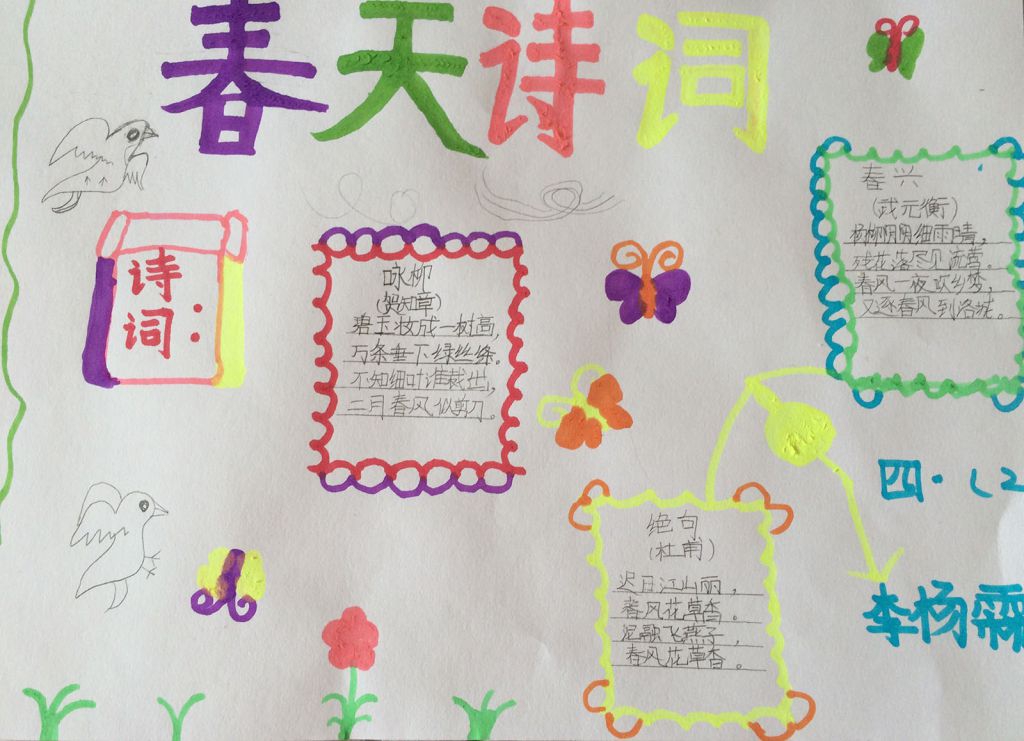 春天诗词
诗
词：
咏柳
(贺知章)
碧玉妆成一树高，
万条垂下绿丝绦。
不知细叶谁裁出，
二月春风似剪刀。
春兴
(武元衡)
杨柳阴阴细雨晴，
残花落尽见流莺。
春风一夜吹乡梦，
又逐春风到洛城。
绝句
(杜甫)
迟日江山丽，
春风花草香。
泥融飞燕子，
春风花草香。
四·(2
李杨霖